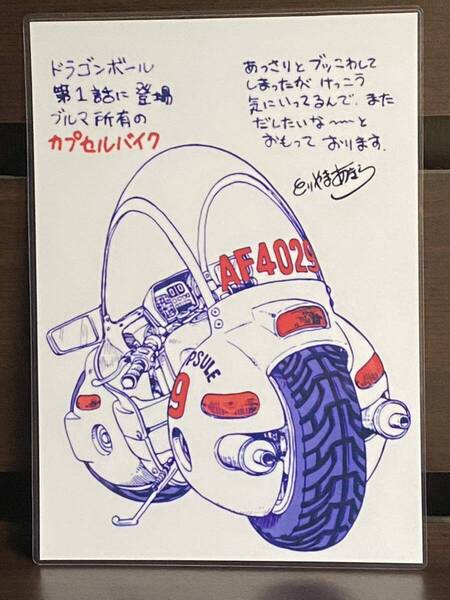 ドラゴンボール
第1話に登場
ブルマ所有の
カプセルバイク
あっさりとブッこわして
しまったが けっこう
気にいってるんで、また
だしたいな〜〜と
おもって おります.
とりやまあきら
AF4029
PSULE
9